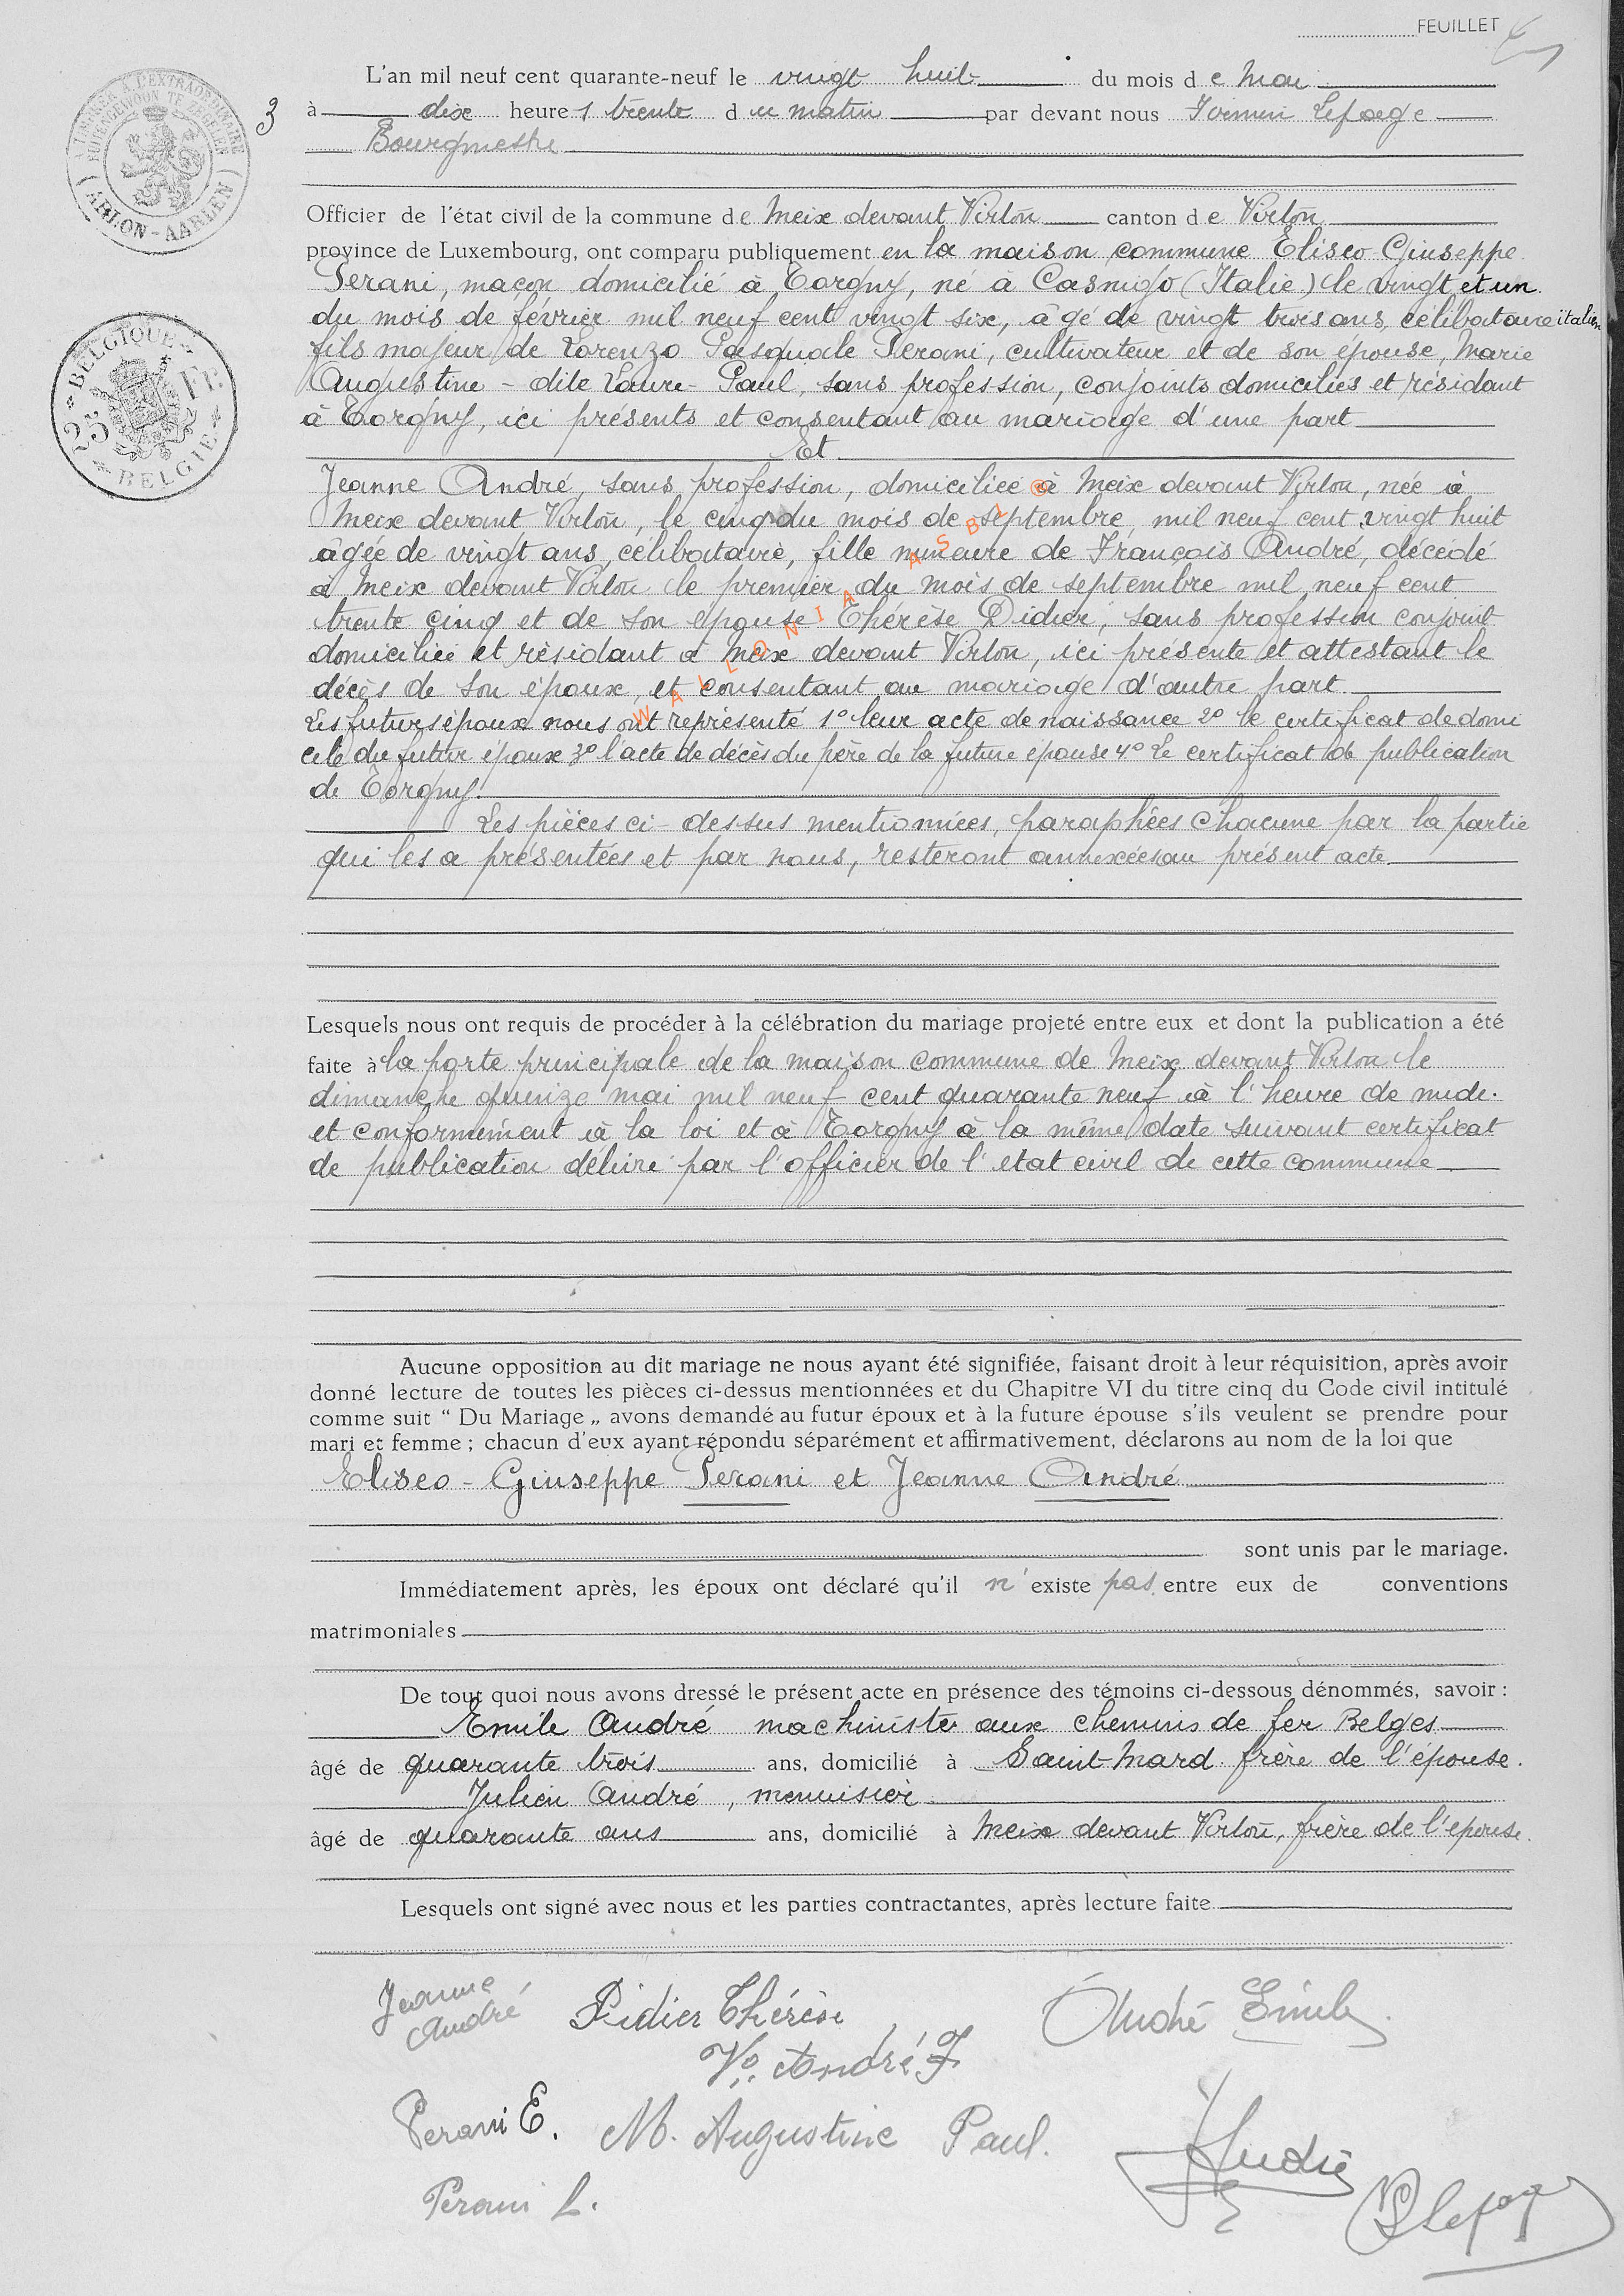 FEUILLET
L'an mil neuf cent quarante-neuf le vingt huit du mois de Mai
3
à dix heures trente du matin par devant nous Lepage
Bourgmestre
Officier de l'état civil de la commune de Meix devant Virton canton de Virton
province de Luxembourg, ont comparu publiquement en la maison commune Eliseo Giuseppe
Perani, maçon domicilié à Torgny, né à Casnigo (Italie) le vingt et un
du mois de février mil neuf cent vingt six, âgé de vingt trois ans, célibataire italien
fils majeur de Lorenzo Pasquale Perani, cultivateur et de son épouse, Marie
Augustine - dite Laure - Paul, sans profession, conjoints domiciliés et résidant
à Torgny, ici présents et consentant au mariage d'une part
Et
Jeanne André, sans profession, domiciliée à Meix devant Virton, née à
Meix devant Virton, le cinq du mois de septembre mil neuf cent vingt huit
âgée de vingt ans, célibataire, fille mineure de François André, décédé
à Meix devant Virton le premier du mois de septembre mil neuf cent
trente cinq et de son épouse Thérèse Didier, sans profession conjoint
domiciliée et résidant à Meix devant Virton, ici présente et attestant le
décès de son époux, et consentant au mariage d'autre part
Les futurs époux nous ont représenté 1° leur acte de naissance 2° le certificat de domi
cile du futur époux 3° l'acte de décès du père de la future épouse 4° Le certificat de publication
de Torgny.
Les pièces ci-dessus mentionnées, paraphées chacune par la partie
qui les a présentées et par nous, resteront annexées au présent acte.
Lesquels nous ont requis de procéder à la célébration du mariage projeté entre eux et dont la publication a été
faite à la porte principale de la maison commune de Meix devant Virton le
dimanche quinze mai mil neuf cent quarante neuf à l'heure de midi.
et conformément à la loi et à Torgny à la même date suivant certificat
de publication délivré par l'officier de l'état civil de cette commune
Aucune opposition au dit mariage ne nous ayant été signifiée, faisant droit à leur réquisition, après avoir
donné lecture de toutes les pièces ci-dessus mentionnées et du Chapitre VI du titre cinq du Code civil intitulé
comme suit “ Du Mariage „ avons demandé au futur époux et à la future épouse s'ils veulent se prendre pour
mari et femme ; chacun d'eux ayant répondu séparément et affirmativement, déclarons au nom de la loi que
Eliseo - Giuseppe Perani et Jeanne André
sont unis par le mariage.
Immédiatement après, les époux ont déclaré qu'il n'existe pas entre eux de conventions
matrimoniales
De tout quoi nous avons dressé le présent acte en présence des témoins ci-dessous dénommés, savoir :
Emile André machiniste aux chemins de fer Belges
âgé de quarante trois ans, domicilié à Saint-Mard frère de l'épouse.
Julien André, menuisier
âgé de quarante ans ans, domicilié à Meix devant Virton, frère de l'épouse.
Lesquels ont signé avec nous et les parties contractantes, après lecture faite
Jeanne
André
Didier Thérèse
Ve. André F
André Emile
Perani E. M. Augustine Paul.
André
Perani L.
Lepage
BELGIQUE
25 FR
BELGIE
ARLON - AARLEN
WALLONIA ASBL ®